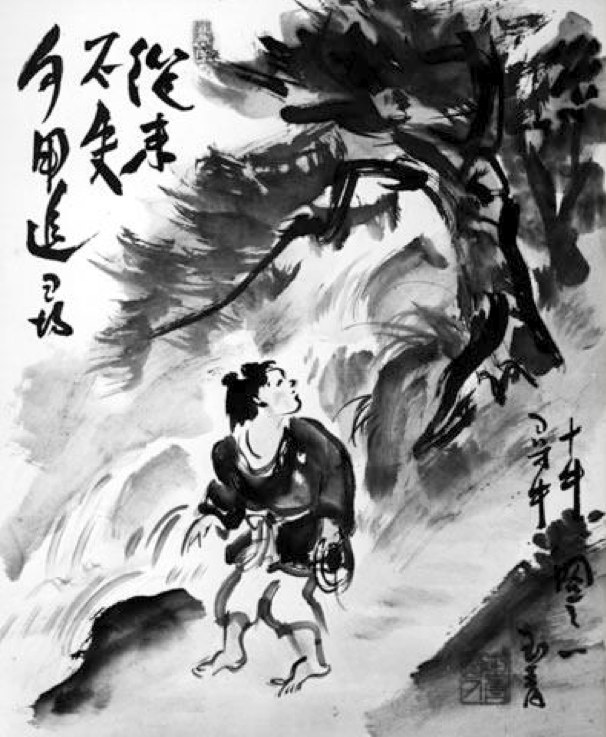 從来
不失
何用追尋
十牛圖之一
尋牛